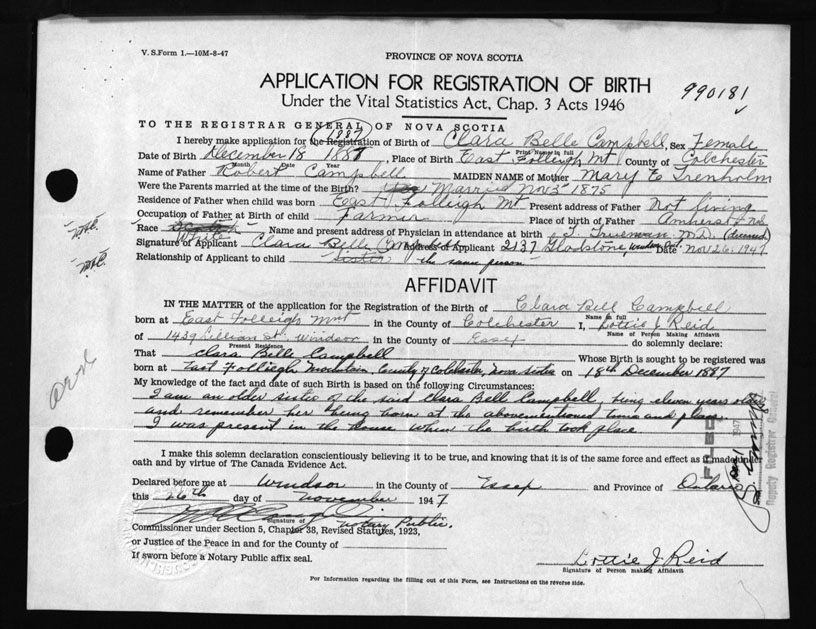 V. S. Form 1.—10M-8-47
PROVINCE OF NOVA SCOTIA
APPLICATION FOR REGISTRATION OF BIRTH
Under the Vital Statistics Act, Chap. 3 Acts 1946
990181
TO THE REGISTRAR GENERAL OF NOVA SCOTIA
1887
I hereby make application for the Registration of Birth of Clara Belle Campbell, Sex Female
Print Name in full
Date of Birth December 18 1887, Place of Birth East Folleigh Mt County of Colchester
Month Date Year
Name of Father Robert Campbell MAIDEN NAME of Mother Mary E Trenholm
Were the Parents married at the time of Birth? Yes Married Nov 5 1875
Residence of Father when child was born East Folleigh Mt Present address of Father Not living
Occupation of Father at Birth of child Farmer Place of birth of Father Amherst N.S.
Race Scotch Name and present address of Physician in attendance at birth T. Trueman M.D. (deceased)
White
Signature of Applicant Clara Belle Campbell Address of Applicant 2137 Gladstone, Windsor Ont. Date Nov 26, 1947
Relationship of Applicant to child Sister the same person
AFFIDAVIT
IN THE MATTER of the application for the Registration of the Birth of Clara Bell Campbell
Name in full
born at East Folleigh Mnt in the County of Colchester I, Lottie J Reid
Name of Person Making Affidavit
of 1439 Lillian St. Windsor in the County of Essex do solemnly declare:
Present Residence
That Clara Belle Campbell Whose Birth is sought to be registered was
born at East Folliegh Mountain, County of Colchester, Nova Scotia on 18th December 1887
My knowledge of the fact and date of such Birth is based on the following Circumstances:
I am an older sister of the said Clara Bell Campbell, being eleven years older
and remember her being born at the abovementioned time and place.
I was present in the house when the birth took place
I make this solemn declaration conscientiously believing it to be true, and knowing that it is of the same force and effect as if made under
oath and by virtue of The Canada Evidence Act.
Declared before me at Windsor in the County of Essex and Province of Ontario
this 26th day of November 1947
Signature of Notary Public.
Commissioner under Section 5, Chapter 38, Revised Statutes, 1923,
or Justice of the Peace in and for the County of
If sworn before a Notary Public affix seal.
Lottie J Reid
Signature of Person making Affidavit
For Information regarding the filling out of this Form, see Instructions on the reverse side.
FILED
DEC 1 1947
Deputy Registrar General